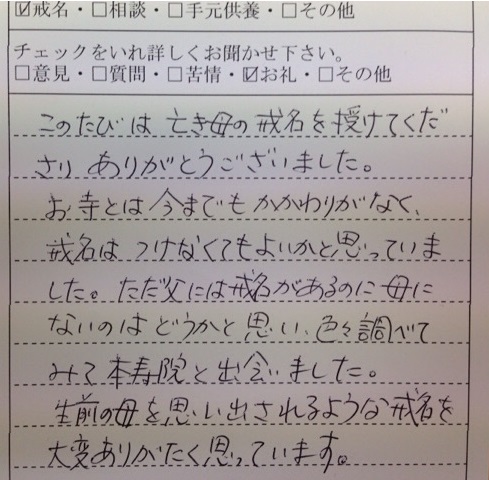 ☑戒名・☐相談・☐手元供養・☐その他
チェックをいれ詳しくお聞かせ下さい。
☐意見・☐質問・☐苦情・☑お礼・☐その他
このたびは 亡き母の戒名を授けてくだ
さり ありがとうございました。
お寺とは今までもかかわりがなく、
戒名は つけなくてもよいかと思っていま
した。ただ父には戒名があるのに母に
ないのは どうかと思い、色々調べて
みて 本寿院と出会いました。
生前の母を思い出されるような戒名を
大変ありがたく思っています。